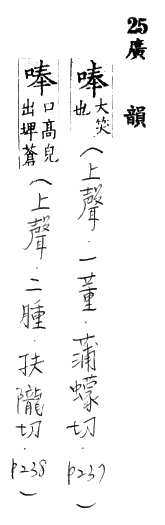 25廣韻
唪大笑也(上聲.一董.蒲蠓切.p237)
唪口高皃出埤蒼(上聲.二腫.扶隴切.p238)